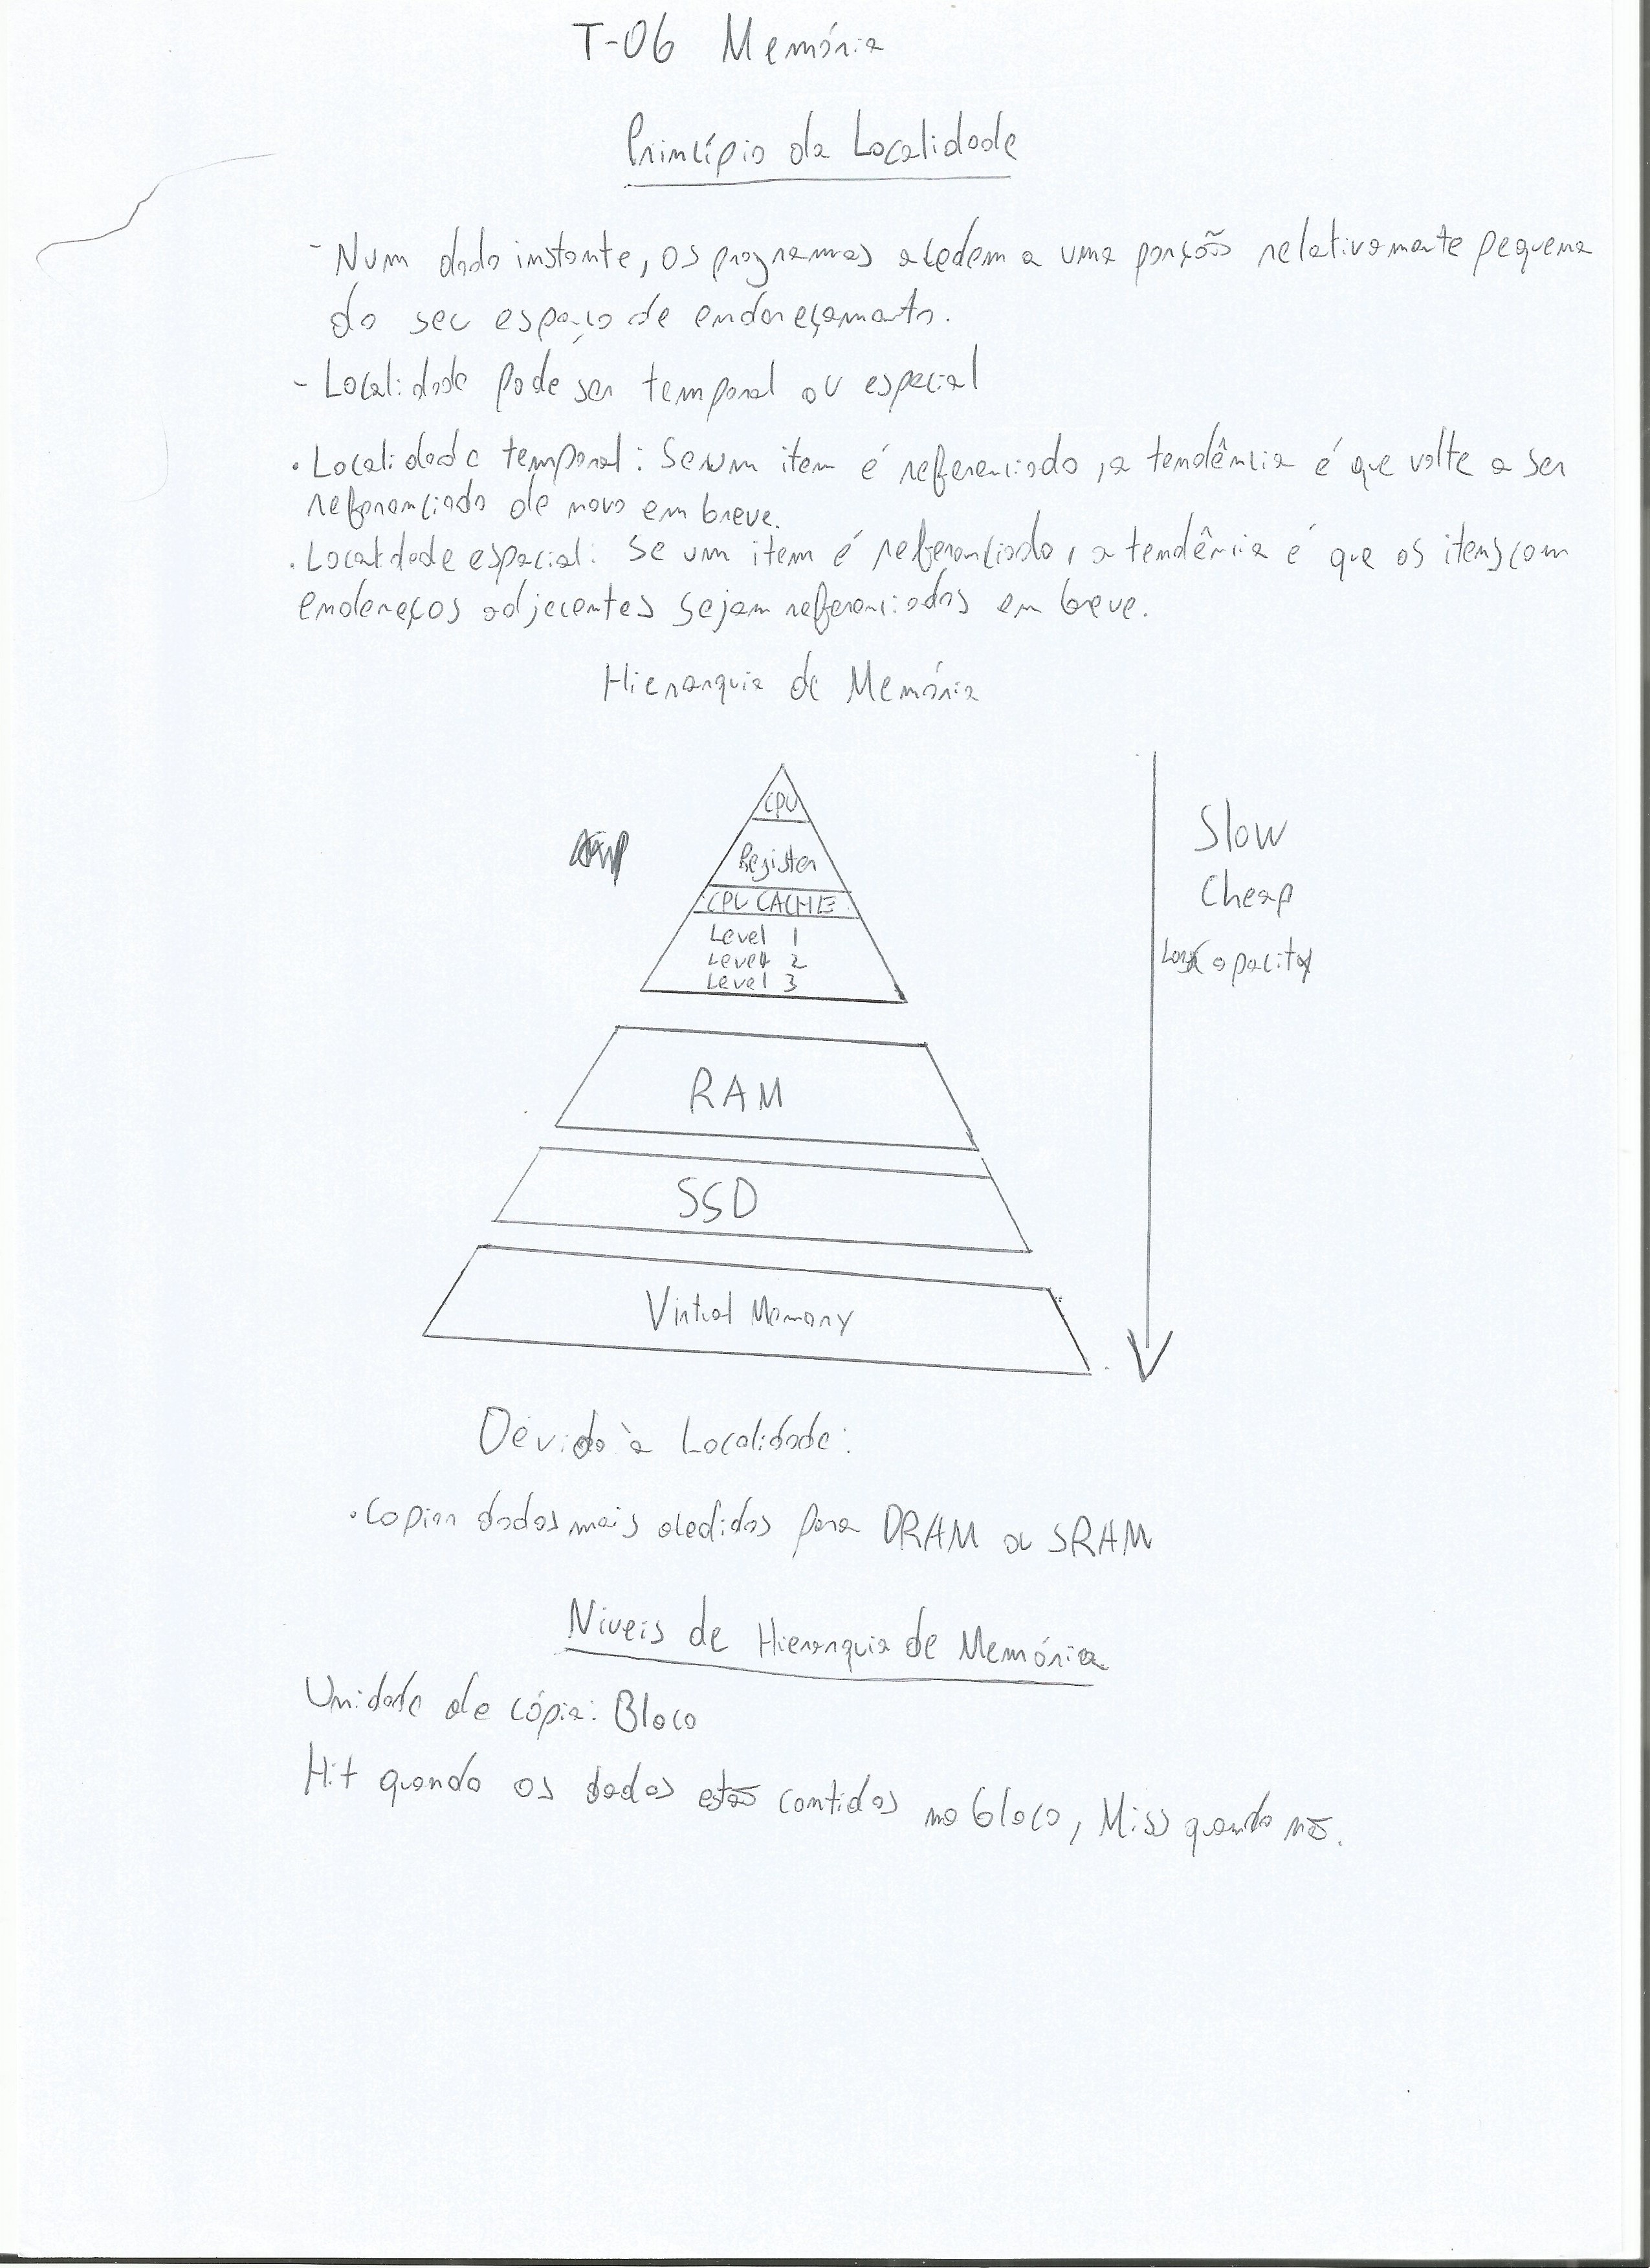 T-06 Memória
Princípio da Localidade
- Num dado instante, os programas acedem a uma porção relativamente pequena
do seu espaço de endereçamento.
- Localidade pode ser temporal ou espacial
. Localidade temporal: Se um item é referenciado, a tendência é que volte a ser
referenciado de novo em breve.
. Localidade espacial: Se um item é referenciado, a tendência é que os itens com
endereços adjecentes sejam referenciados em breve.
Hierarquia de Memória
CPU
Register
CPU CACHE
Level 1
Level 2
Level 3
Slow
Cheap
Capacity
RAM
SSD
Virtual Memory
Devido à Localidade:
. Copiar dados mais acedidos para DRAM ou SRAM
Níveis de Hierarquia de Memória
Unidade de cópia: Bloco
Hit quando os dados estão contidos no bloco, Miss quando não.